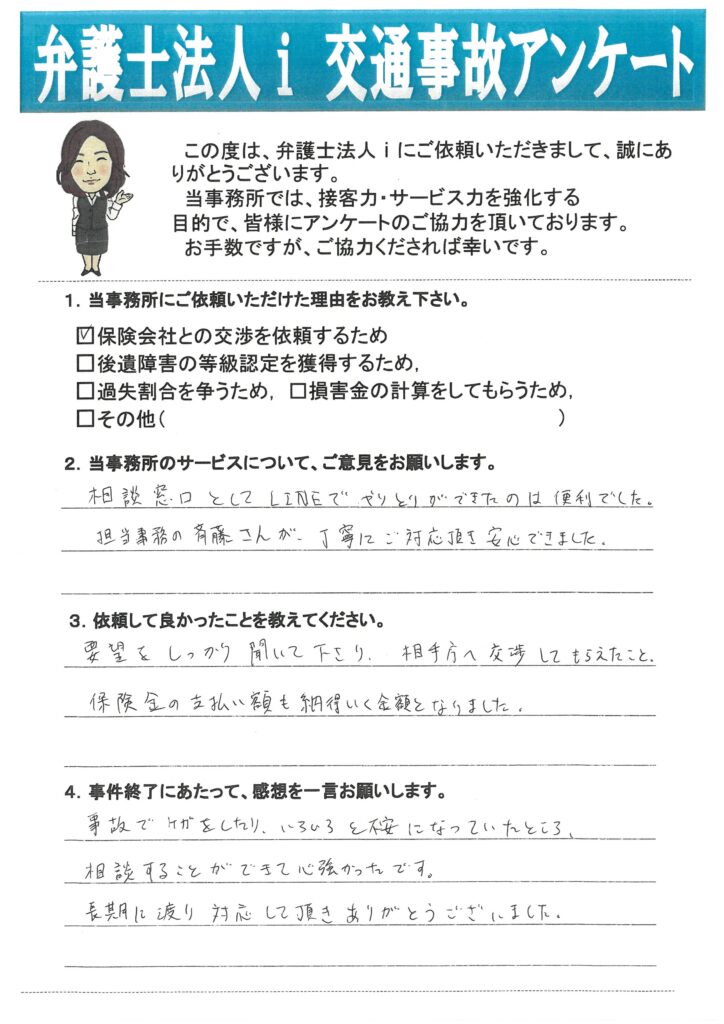 弁護士法人ｉ 交通事故アンケート
この度は、弁護士法人ｉにご依頼いただきまして、誠にあ
りがとうございます。
当事務所では、接客力・サービス力を強化する
目的で、皆様にアンケートのご協力を頂いております。
お手数ですが、ご協力くだされば幸いです。
１．当事務所にご依頼いただけた理由をお教え下さい。
☑保険会社との交渉を依頼するため
□後遺障害の等級認定を獲得するため，
□過失割合を争うため， □損害金の計算をしてもらうため，
□その他（　　　　　　　　　　　　　　　　）
２．当事務所のサービスについて、ご意見をお願いします。
相談窓口としてLINEでやりとりができたのは便利でした。
担当事務の斉藤さんが、丁寧にご対応頂き安心できました。
３．依頼して良かったことを教えてください。
要望をしっかり聞いて下さり、相手方へ交渉してもらえたこと。
保険金の支払い額も納得いく金額となりました。
４．事件終了にあたって、感想を一言お願いします。
事故でケガをしたり、いろいろと不安になっていたところ、
相談することができて心強かったです。
長期に渡り対応して頂きありがとうございました。